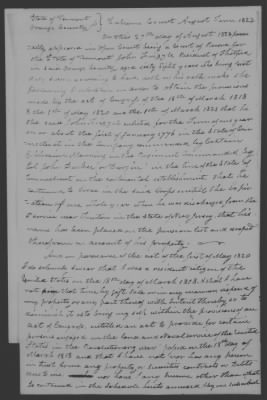 State of Vermont
Orange County } Supreme Court August Term 1820
On the 8th day of August 1820 personally
appeared in Open Court being a Court of Record for
the State of Vermont John Resident of Thetford
in said Orange County aged sixty eight years who being first
duly sworn according to Law doth on his oath make the
following declaration in order to obtain the provisions
made by the acts of Congress of the 18th of March 1818
& the 1st of May 1820 that he
the said John enlisted for the term of one year
on or about the first of January 1776 in the State of Connecticut
in the Company commanded by Captain
Ebenezer in the Regiment commanded by
Col John in the line of the State of
Connecticut on the continental establishment that he
continued to serve in the said Corps until the expiration
of one whole year when he was discharged from the
Service near Trenton in the State of New Jersey that his
name has been placed on the pension list and dropt
therefrom on account of his property
And in pursuance of the act of the first of May 1820
I do solemnly swear that I was a resident citizen of the
United States on the 18th day of March 1818 & that I have
not since that time by gift sale or in any manner disposed of
my property or any part thereof with intent thereby so to
diminish it as to bring myself within the provisions of an
act of Congress entitled an act to provide for certain
persons engaged in the land and Naval service of the United
States in the Revolutionary War passed on the 18th day of
March 1818 and that I have not nor has any person
in trust for me any property or securities contracts or debts
due to me nor have I any income other than what
is contained in the schedule hereto annexed & by me subscribed